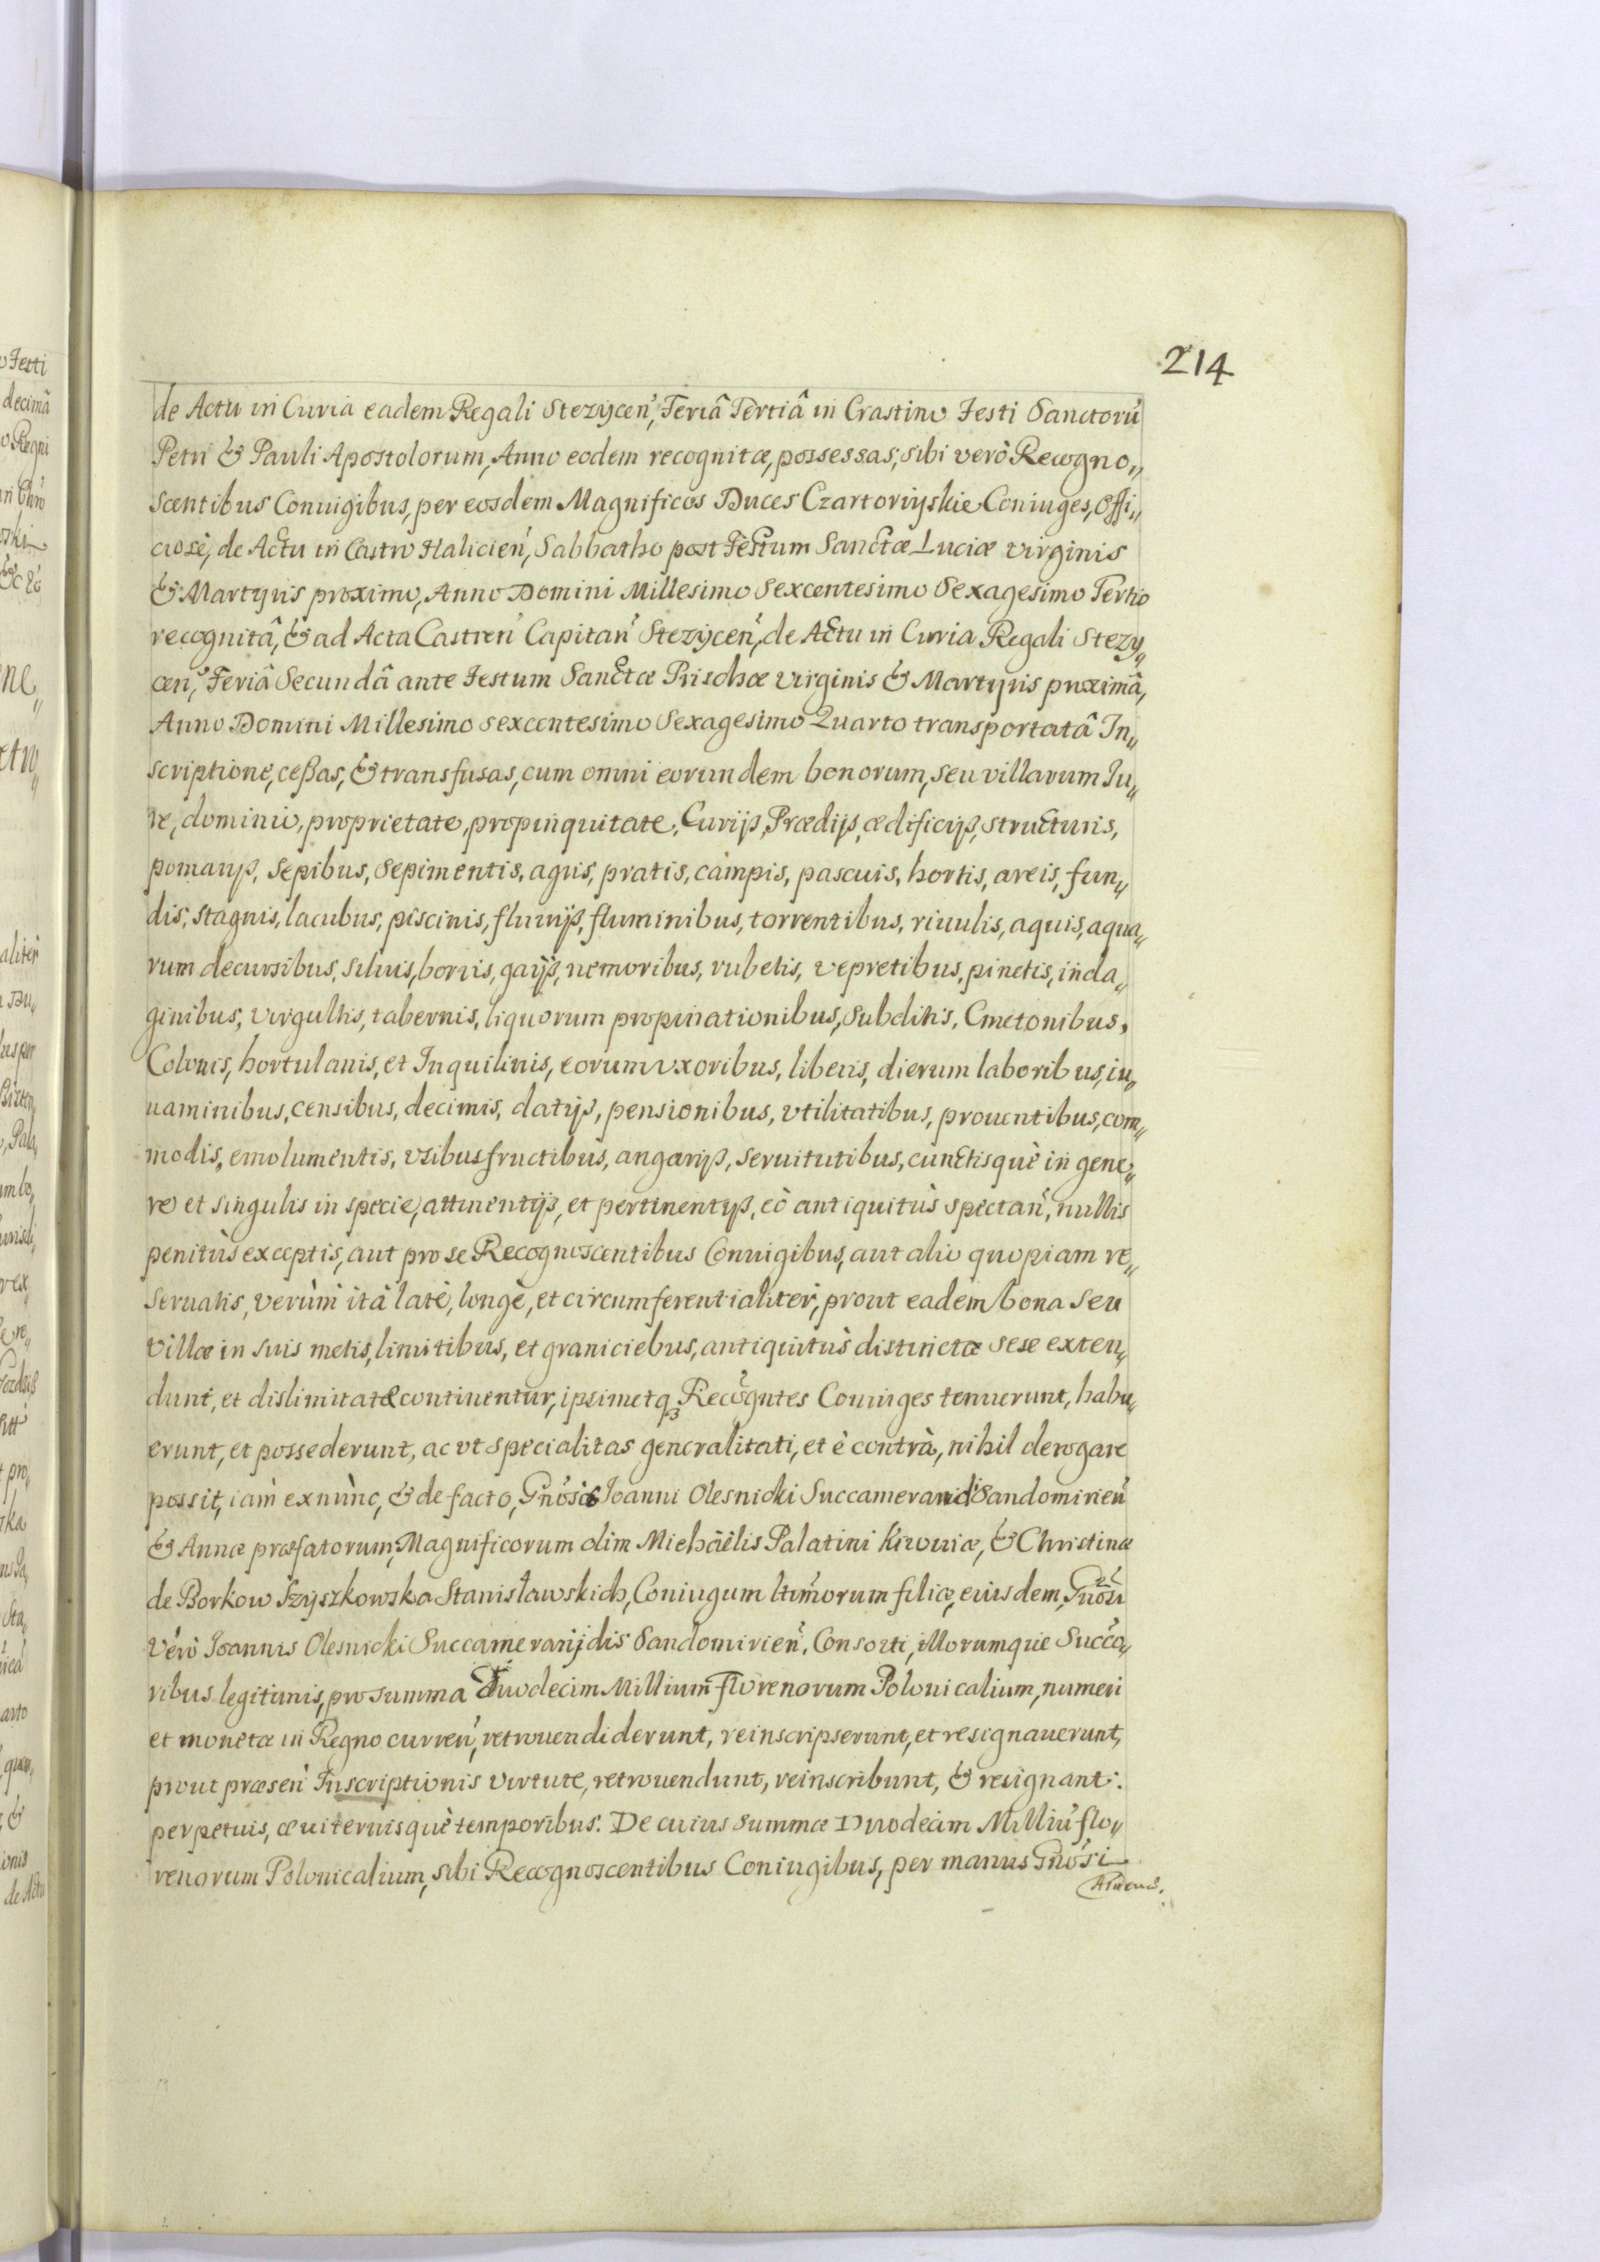 214
de Actu in Curia eadem Regali Stezÿcen̄, Feriâ Tertiâ in Crastino Festi Sanctorū
Petri & Pauli Apostolorum, Anno eodem recognitæ, possessas; sibi verò Recogno„
scentibus Coniugibus, per eosdem Magnificos Duces Czartoriyskie Coniuges, Offi„
ciosè, de Actu in Castro Halicien̄, Sabbatho post Festum Sanctæ Luciæ Virginis
& Martyris proximo, Anno Domini Millesimo Sexcentesimo Sexagesimo Tertio
recognitâ, & ad Acta Castren̄ Capitan̄ Stezÿcen̄, de Actu in Curia Regali Stezy„
cen̄, Feriâ Secundâ ante Festum Sanctæ Prischæ Virginis & Martyris proximâ,
Anno Domini Millesimo sexcentesimo Sexagesimo Quarto transportatâ In„
scriptione, ceßas, & transfusas, cum omni eorundem bonorum, seu villarum Iu„
re, dominio, proprietate, propinquitate, Curijs, Prædijs, ædificijs, structuris,
pomarijs, sepibus, sepimentis, agris, pratis, campis, pascuis, hortis, areis, fun„
dis, stagnis, lacubus, piscinis, fluuijs, fluminibus, torrentibus, riuulis, aquis, aqua„
rum decursibus, siluis, borris, gaijs, nemoribus, rubetis, vepretibus, pinetis, inda„
ginibus, virgultis, tabernis, liquorum propinationibus, Subditis, Cmetonibus,
Colonis, hortulanis, et Inquilinis, eorum vxoribus, liberis, dierum laboribus, iu„
uaminibus, censibus, decimis, datijs, pensionibus, vtilitatibus, prouentibus, com„
modis, emolumentis, vsibusfructibus, angarijs, seruitutibus, cunctisquè in gene„
re et singulis in specie, attinentijs, et pertinentijs, eò antiquitùs spectan̄, nullis
penitùs exceptis, aut pro se Recognoscentibus Coniugibus, aut alio quopiam re„
seruatis, verùm ità latè, longè, et circumferentialiter, prout eadem bona seu
villæ in suis metis, limitibus, et graniciebus, antiquitùs distinctæ sese exten„
dunt, et dislimitatæ continentur, ipsimetqꝫ Recogn̄tes Coniuges tenuerunt, habu„
erunt, et possederunt, ac vt specialitas generalitati, et è contrà, nihil derogare
possit, iam exnùnc, & de facto, Gn̄osis Ioanni Olesnicki Succamerario Sandomirien̄
& Annæ præfatorum, Magnificorum olim Michäelis Palatini Kiouiæ, & Christinæ
de Borkow Szyszkowska Stanisławskich, Coniugum ltīmorum filiæ, eiusdem, Gn̄osi
vero Ioannis Olesnicki Succamerarij dis Sandomirien̄, Consorti, illorumque Succ̄o„
ribus legitimis, pro summa Duodecim Millium florenorum Polonicalium, numeri
et monetæ in Regno curren̄, retrouendiderunt, reinscripserunt, et resignauerunt,
prout præsen̄ Inscriptionis virtute, retrouendunt, reinscribunt, & resignant:
perpetuis, æuiternisquè temporibus. De cuius summæ Duodecim Milliū flo„
renorum Polonicalium, sibi Recognoscentibus Coniugibus, per manus Gn̄osi